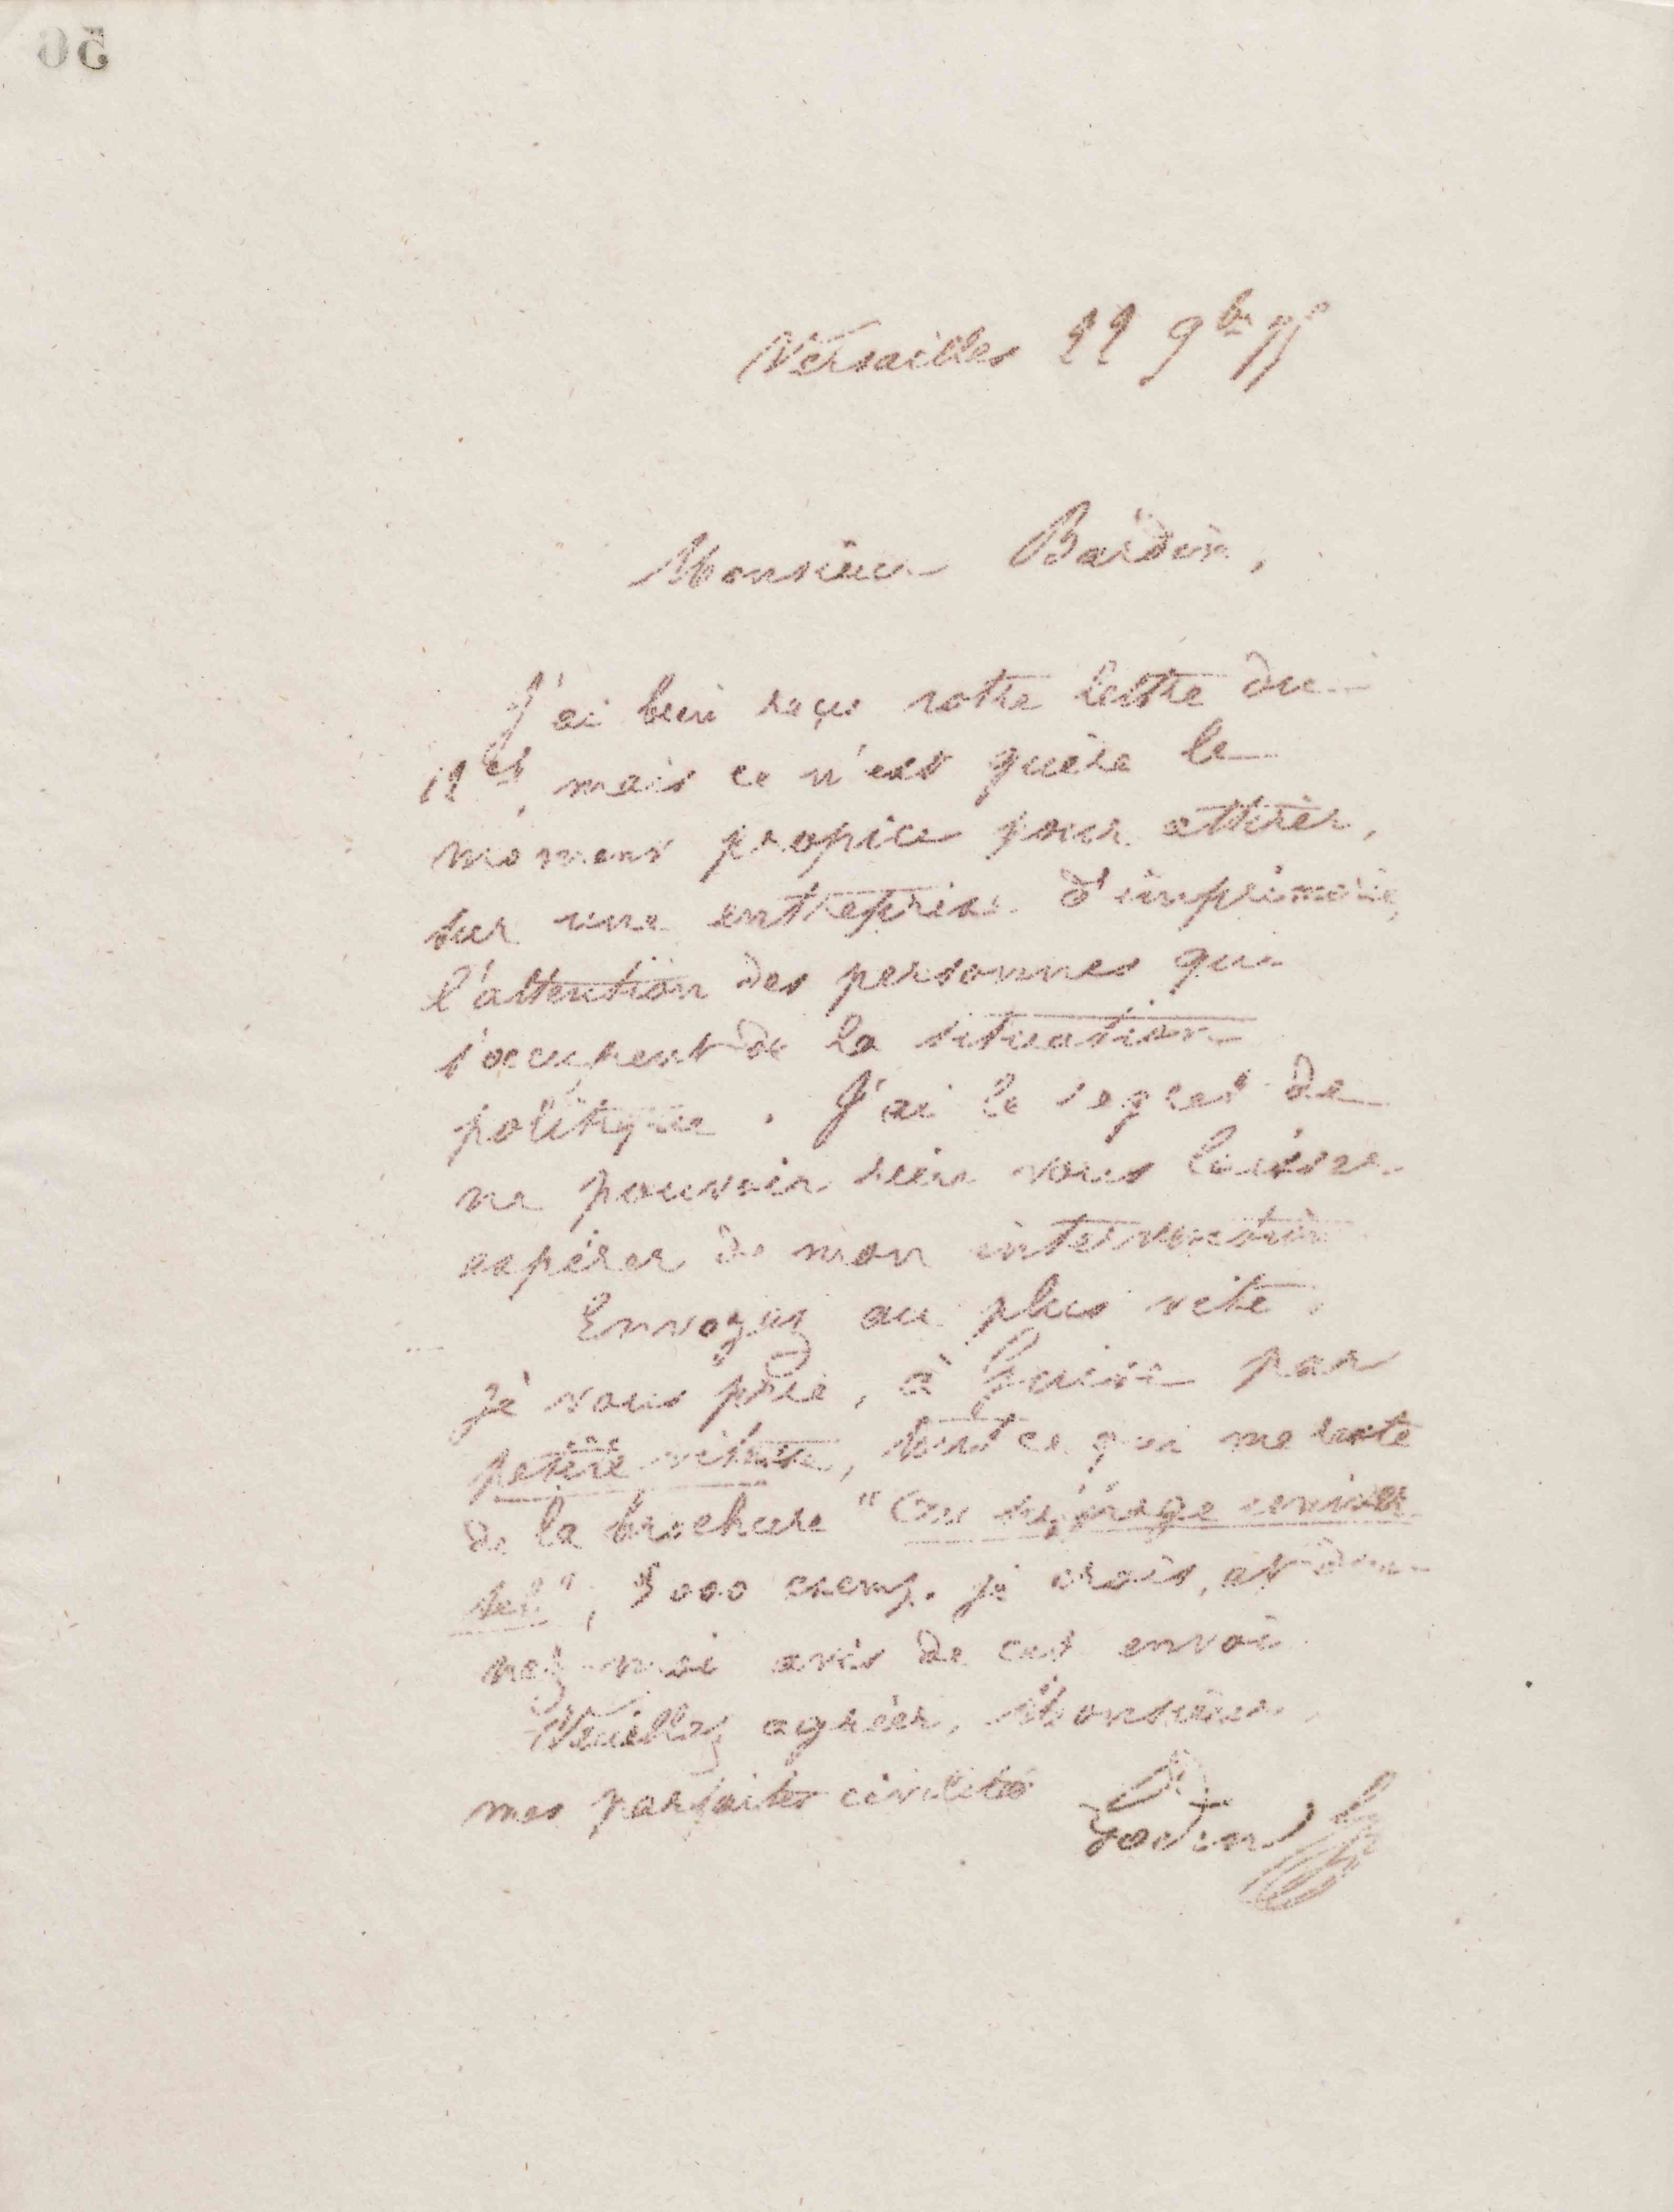 56
Versailles 22 9bre 75
Monsieur Bardin,
J'ai bien reçu votre lettre du
12 ct, mais ce n'est guère le
moment propice pour attirer,
sur une entreprise d'imprimerie,
l'attention des personnes qui
s'occupent de la situation
politique. J'ai le regret de
ne pouvoir rien vous laisser
espérer de mon intervention
Envoyez au plus vite,
je vous prie, à Guise par
petite vitesse, tout ce qui me reste
de la brochure "Du suffrage univer
sel", 5000 exemp. je crois, et don-
nez-moi avis de cet envoi
Veuillez agréer, Monsieur,
mes parfaites civilités
Godin